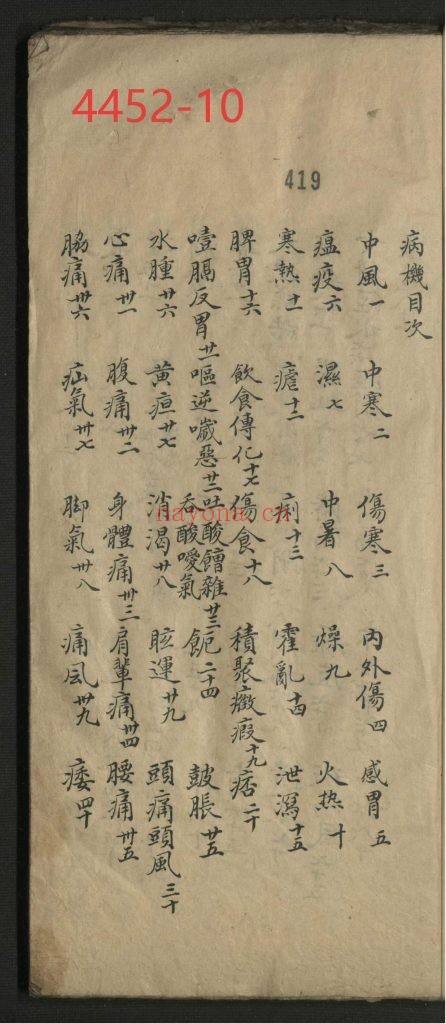 4452-10
419
病機目次
中風一 中寒二 傷寒三 內外傷四 感冒五
瘟疫六 濕七 中暑八 燥九 火热十
寒熱十一 瘧十二 痢十三 霍亂十四 泄瀉十五
脾胃十六 飲食傳化十七 傷食十八 積聚癥瘕十九 痞二十
噎膈反胃廿一 嘔逆噦惡廿二 吐酸饐雜吞酸噯氣廿三 飽二十四 皷脹廿五
水腫廿六 黄疸廿七 消渴廿八 眩運廿九 頭痛頭風三十
心痛卅一 腹痛卅二 身體痛卅三 肩軰痛卅四 腰痛卅五
脇痛卅六 疝氣卅七 脚氣卅八 痛風卅九 痿四十
nayona.cn